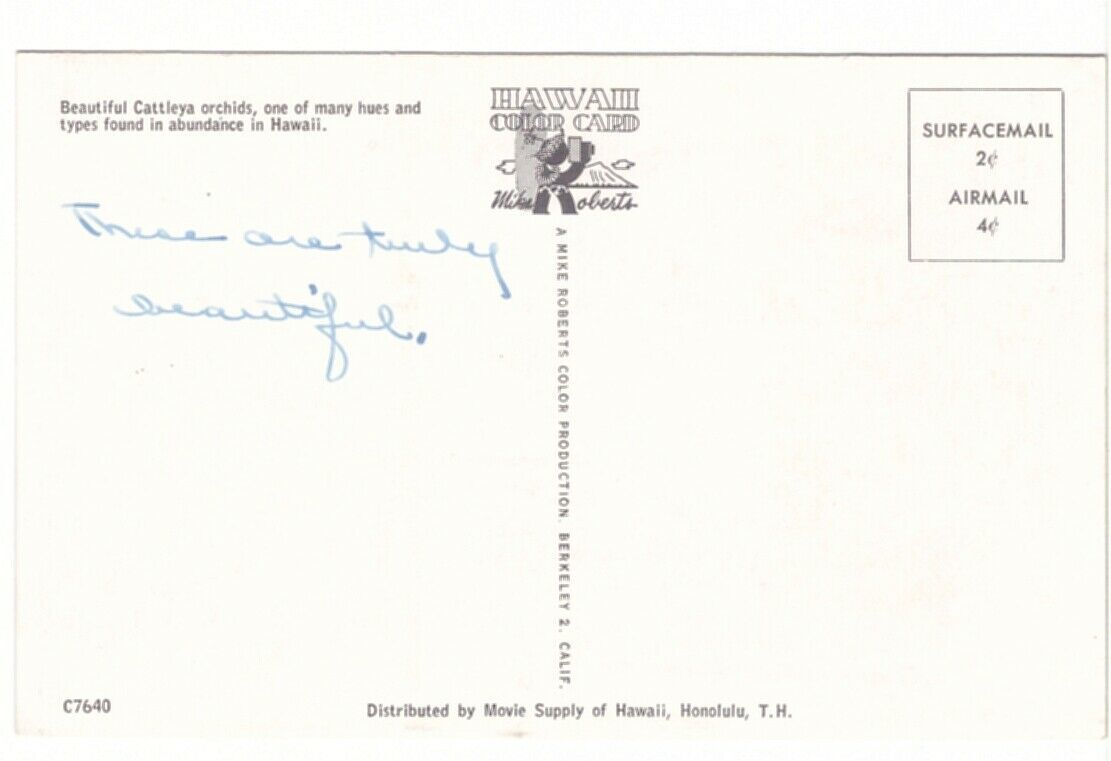 Beautiful Cattleya orchids, one of many hues and
types found in abundance in Hawaii.
HAWAII
COLOR CARD
BY
Mike Roberts
SURFACEMAIL
2¢
AIRMAIL
4¢
These are truly
beautiful.
A MIKE ROBERTS COLOR PRODUCTION. BERKELEY 2. CALIF.
C7640
Distributed by Movie Supply of Hawaii, Honolulu, T.H.